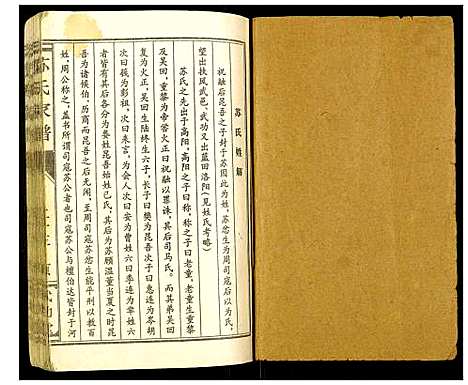 苏氏姓解
祝融后昆吾之子封于苏因此为姓，苏忿生为周司寇后以为氏，
望出扶风武邑、武功又出蓝田洛阳（见姓氏考略）
苏氏之先出于高阳，高阳之子曰称，称之子曰老童，老童生重黎
及吴回，重黎为帝喾火正曰祝融以罪诛，其后司马氏。而其弟吴回
复为火正，吴回生陆终生六子，长子曰樊为昆吾次子曰惠连为参胡
次曰篯为彭祖，次曰来言，为会人次曰安为曹姓六曰季连为芈姓六
人者皆有其后各分为数姓昆吾始姓己氏，其后为苏顾温董当夏之时昆
吾为诸候伯，历商而昆吾之后无闻，至周司寇苏忿生能平刑以教百
姓，周公称之，盖书所谓司寇苏公者也司寇苏公与檀伯达皆封于河
苏氏家谱